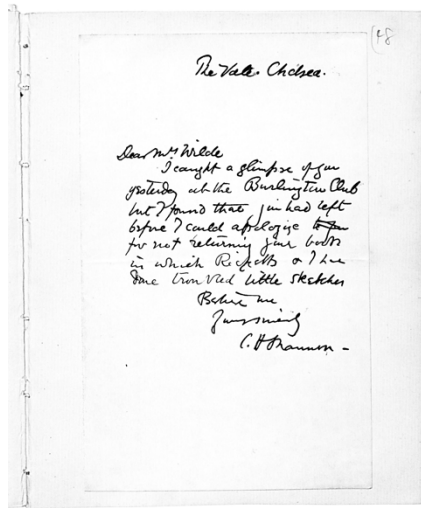 48
The Vale. Chelsea.
Dear Mrs Wilde
I caught a glimpse of you
yesterday at the Burlington Club
but I found that you had left
before I could apologise to you
for not returning your book
in which Ricketts & I have
done two little sketches
Believe me
Yours sincerely
C. H Shannon -